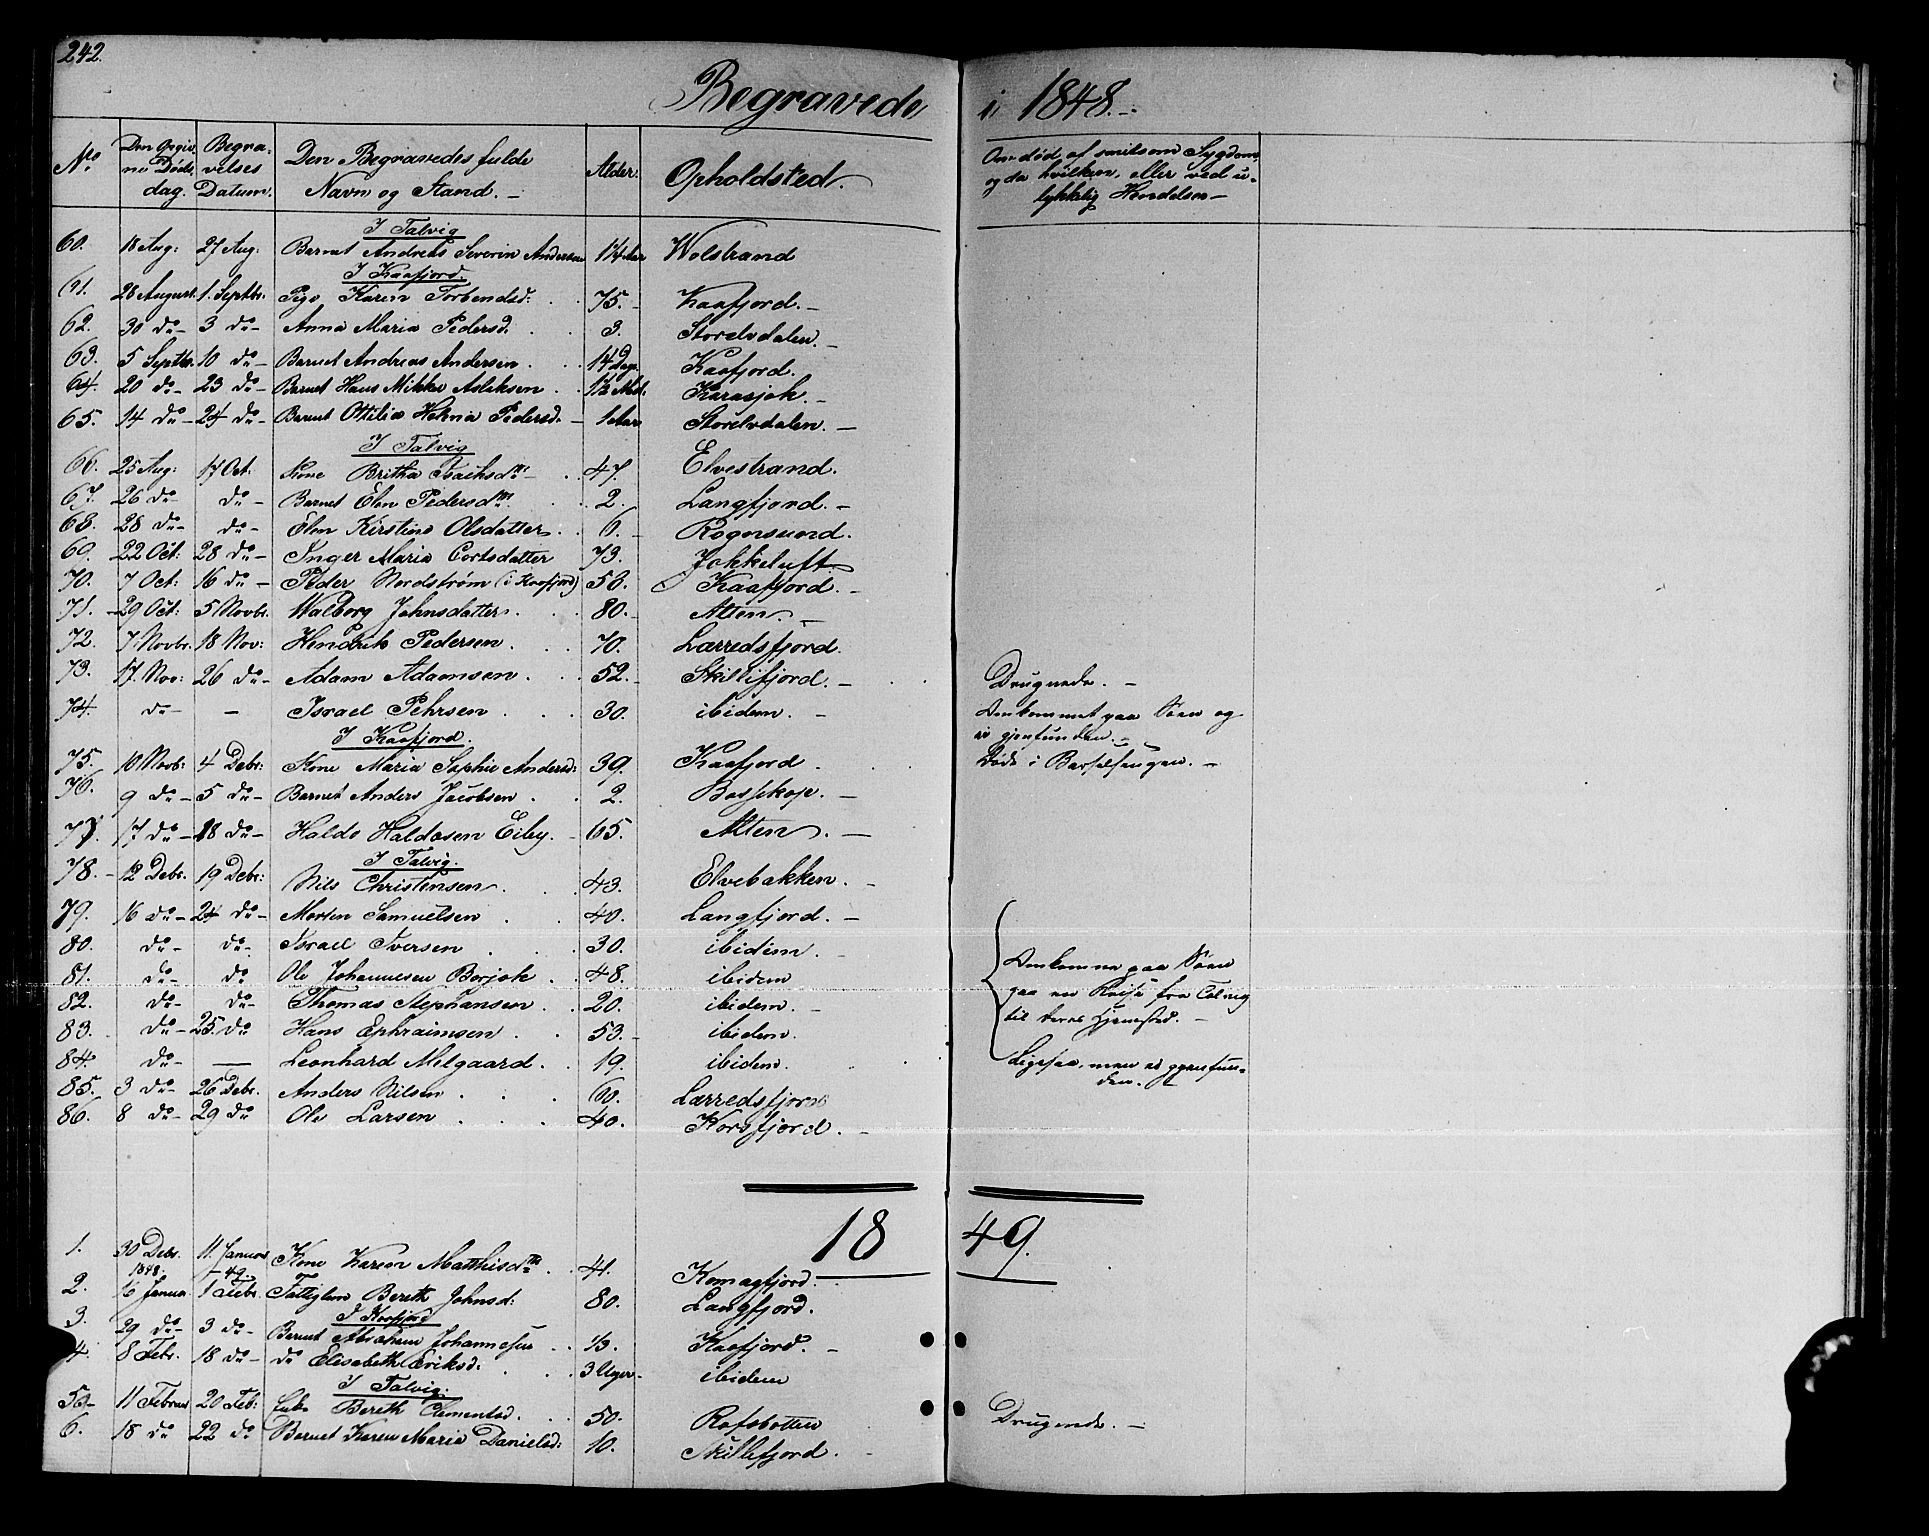 242.
Begravede i 1848.
No | Den Opgivne Døds dag. | Begravelses Datum. | Den Begravedes fulde Navn og Stand. | Alder | Opholdsted. | Om død af smitsom Sygdom og da hvilken, eller ved ulykkelig Hendelse
I Talvig
60. 18 Aug: 27 Aug. Barnet Andreas Severin Andersen 1 1/4 Aar Wolstrand
I Kaafjord.
61. 28 August. 1. Septbr. Pige Karen Torbendsd: 75. Kaafjord.
62. 30 do 3 do Anna Maria Pedersd. 3. Storelvdalen.
63. 5 Septbr. 10 do Barnet Andreas Andersen. 14 Dage Kaafjord.
64. 20 do 23 do Barnet Hans Mikkel Aslaksen 1 1/2 Mdr: Karasjok.
65. 14 do 24 do Barnet Ottilia Helena Pedersd. 1 Aar Storelvdalen.
I Talvig
66. 25 Aug: 17 Oct: Kone Britha Isachsdtr 47. Elvestrand.
67. 26 do do Barnet Elen Pedersdtr. 2. Langfjord.
68. 28 do do Elen Kirstine Olsdatter. 6. Rognsund.
69. 22 Oct: 28 do Inger Maria Cortsdatter 73. Jokkeluft.
70. 7 Oct: 16 do Peder Nordstrøm (i Kaafjord) 50. Kaafjord.
71. 29 Oct: 5 Novbr. Walborg Johnsdatter. 80. Alten.
72. 7 Novbr. 18 Nov: Hendrik Pedersen. 70. Lærredsfjord.
73. 17. Nov: 26 do Adam Adamsen. 52. Skillifjord. Drugnede.
74. do Israel Pehrsen 30. ibidem. Omkommet paa Søen og ei gjenfunden.
I Kaafjord.
75. 10 Novb: 4 Debr: Kone Maria Sophie Andersd: 39. Kaafjord. Døde i Barselsengen.
76. 9 do 5 do Barnet Anders Jacobsen. 2. Bossekop.
77. 17 do 18 do Haldo Haldosen Eiby. 65. Alten.
I Talvig.
78. 12 Debr. 19 Debr: Nils Christensen. 43. Elvebakken.
79. 16 do 24 do Morten Samuelsen 40. Langfjord.
80. do do Israel Iversen 30. ibidem. Omkomne paa Søen
81. do do Ole Johannesen Borjok 48. ibidem paa en Reise fra Talvig
82. do do Thomas Stephansen 20. ibidem. til deres Hjemsted.
83. do 25 do Hans Ephraimsen 53. ibidem.
84. do Leonhard Milgaard. 19. ibidem. Ligesaa, men ei gjenfunden.
85. 3 do 26 Debr. Anders Nilsen 60. Lærredsfjord
86. 8 do 29 do Ole Larsen 40. Korsfjord.
1849.
1. 30 Debr. 1848. 11. Januar 49. Kone Karen Matthisdtr 41. Komagfjord.
2. 16 Januar 1 Febr. Fattiglem Bereth Johnsd: 80. Langfjord.
I Kaafjord
3. 29 do 3 do Barnet Abraham Johannesen 1/3. Kaafjord.
4. 8 Febr. 18 do do Elisabeth Eriksd: 3 Uger ibidem
I Talvig:
5. 11 Februar 20 Feb: Enke Bereth Clementsd. 50. Rafsbotten Drugnede.
6. 18 do 22 do Barnet Karen Maria Danielsd: 10. Skillefjord.